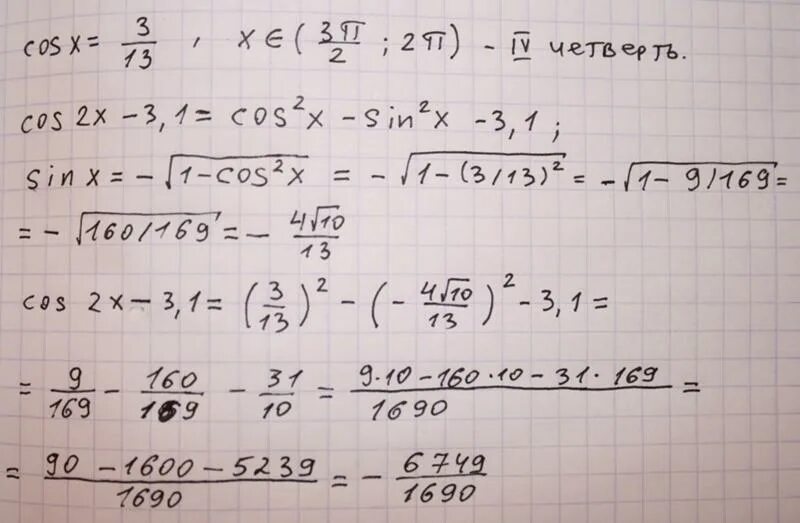 cos x = 3/13 , x ∈ (3π/2 ; 2π) - IV четверть.
cos 2x - 3,1 = cos²x - sin²x - 3,1 ;
sin x = -√(1-cos²x) = -√(1-(3/13)²) = -√(1- 9/169) =
= -√(160/169) = - 4√10/13
cos 2x - 3,1 = (3/13)² - (- 4√10/13)² - 3,1 =
= 9/169 - 160/169 - 31/10 = (9·10-160·10-31·169)/1690 =
= (90 -1600 -5239)/1690 = - 6749/1690